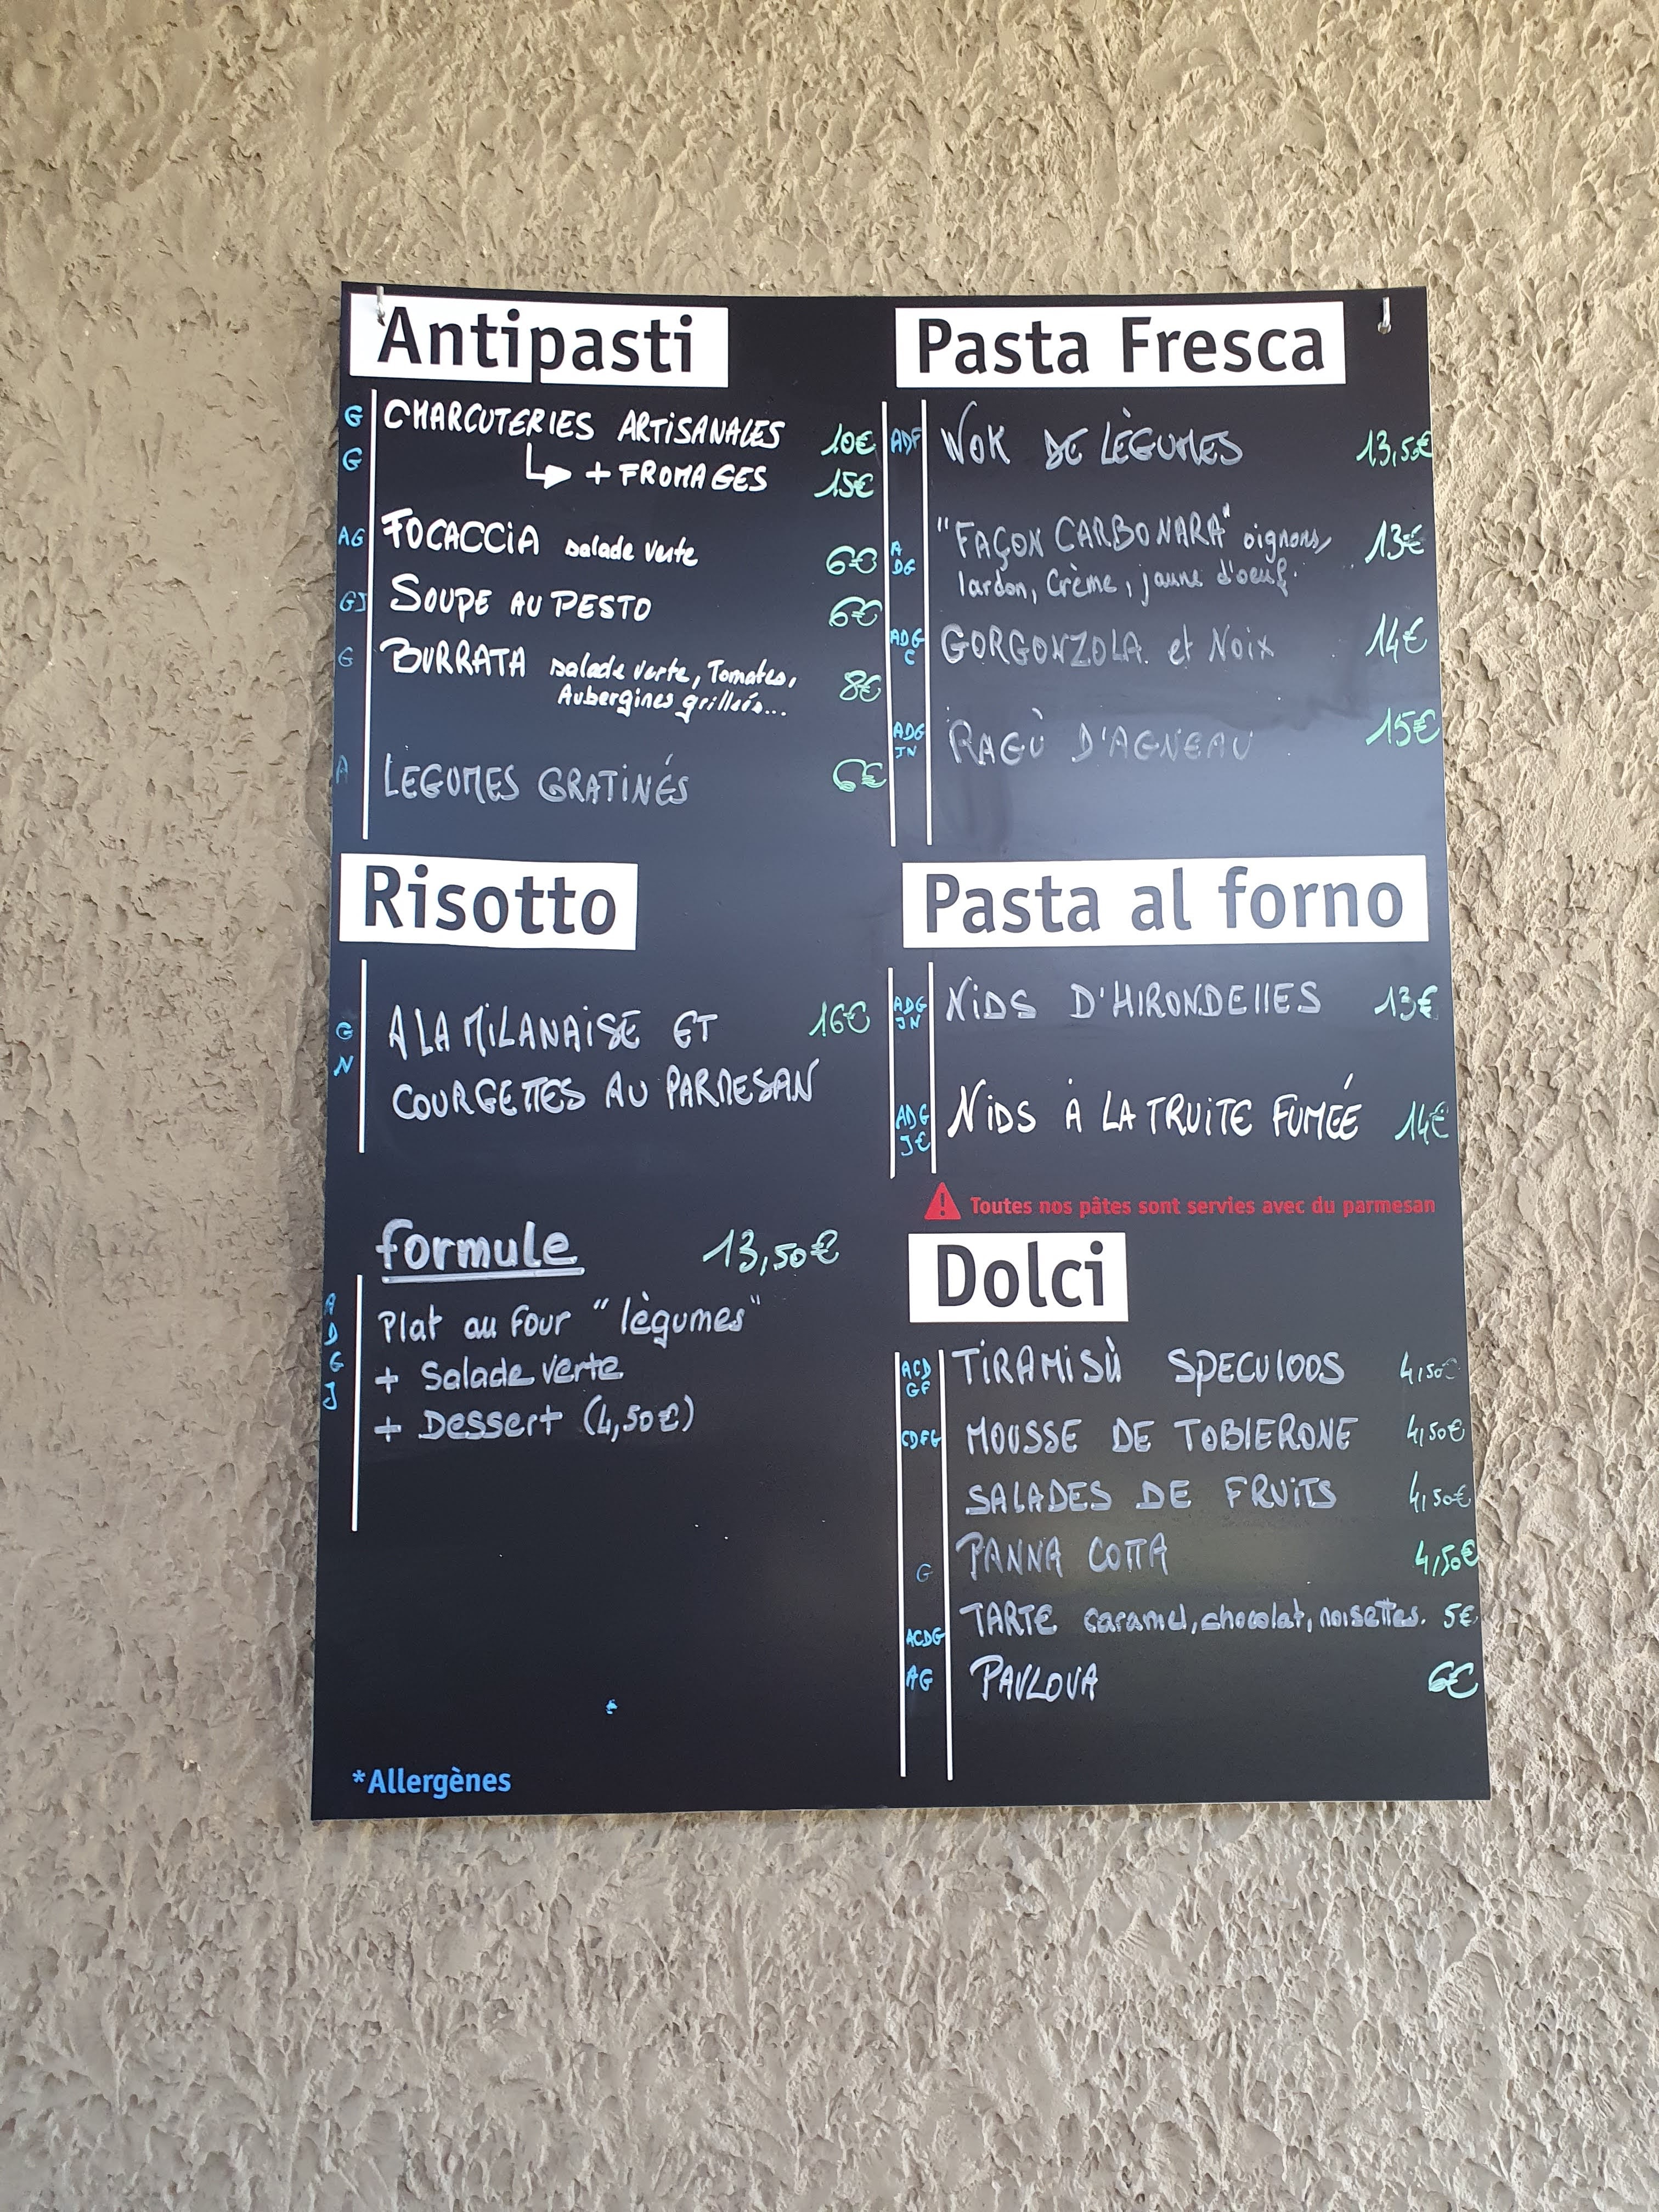 Antipasti
G CHARCUTERIES ARTISANALES 10€
G + FROMAGES 15€
AG FOCACCIA salade verte 6€
GJ SOUPE AU PESTO 6€
G BURRATA salade verte, Tomates,
Aubergines grillées... 8€
A LEGUMES GRATINÉS 6€
Risotto
G A LA MILANAISE ET 16€
N COURGETTES AU PARMESAN
formule 13,50€
A
Plat au four "lègumes"
D
G + Salade verte
J + Dessert (4,50€)
*Allergènes
Pasta Fresca
ADF WOK DE LÈGUMES 13,50€
A "FAÇON CARBONARA" oignons, 13€
DG lardon, Crème, jaune d'oeuf.
ADG GORGONZOLA et Noix 14€
C
ADG RAGÙ D'AGNEAU 15€
JN
Pasta al forno
ADG NIDS D'HIRONDELLES 13€
JN
ADG NIDS À LA TRUITE FUMÉE 14€
J€
Toutes nos pâtes sont servies avec du parmesan
Dolci
ACD TIRAMISÙ SPECULOOS 4,50€
GF
CDFG MOUSSE DE TOBLERONE 4,50€
SALADES DE FRUITS 4,50€
G PANNA COTTA 4,50€
ACDG TARTE caramel, chocolat, noisettes. 5€
AG PAVLOVA 6€